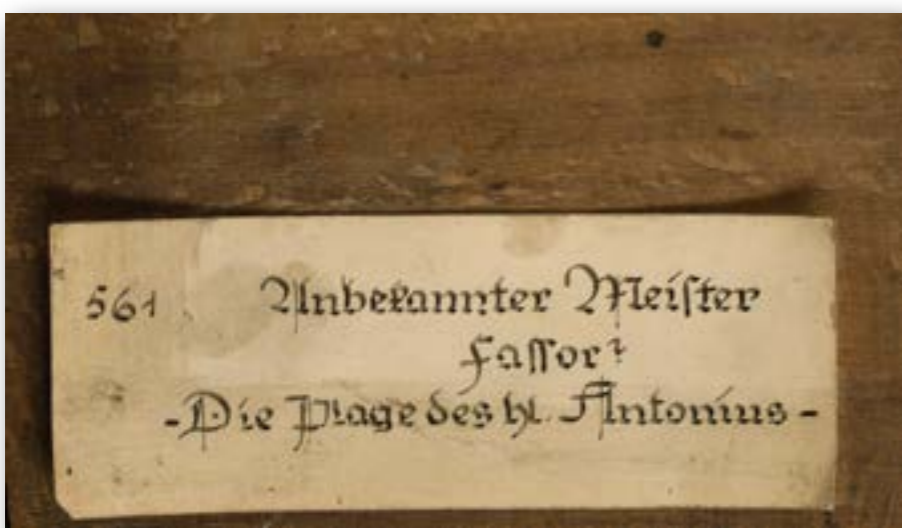 561 Unbekannter Meister
Fassor?
-Die Plage des hl. Antonius-